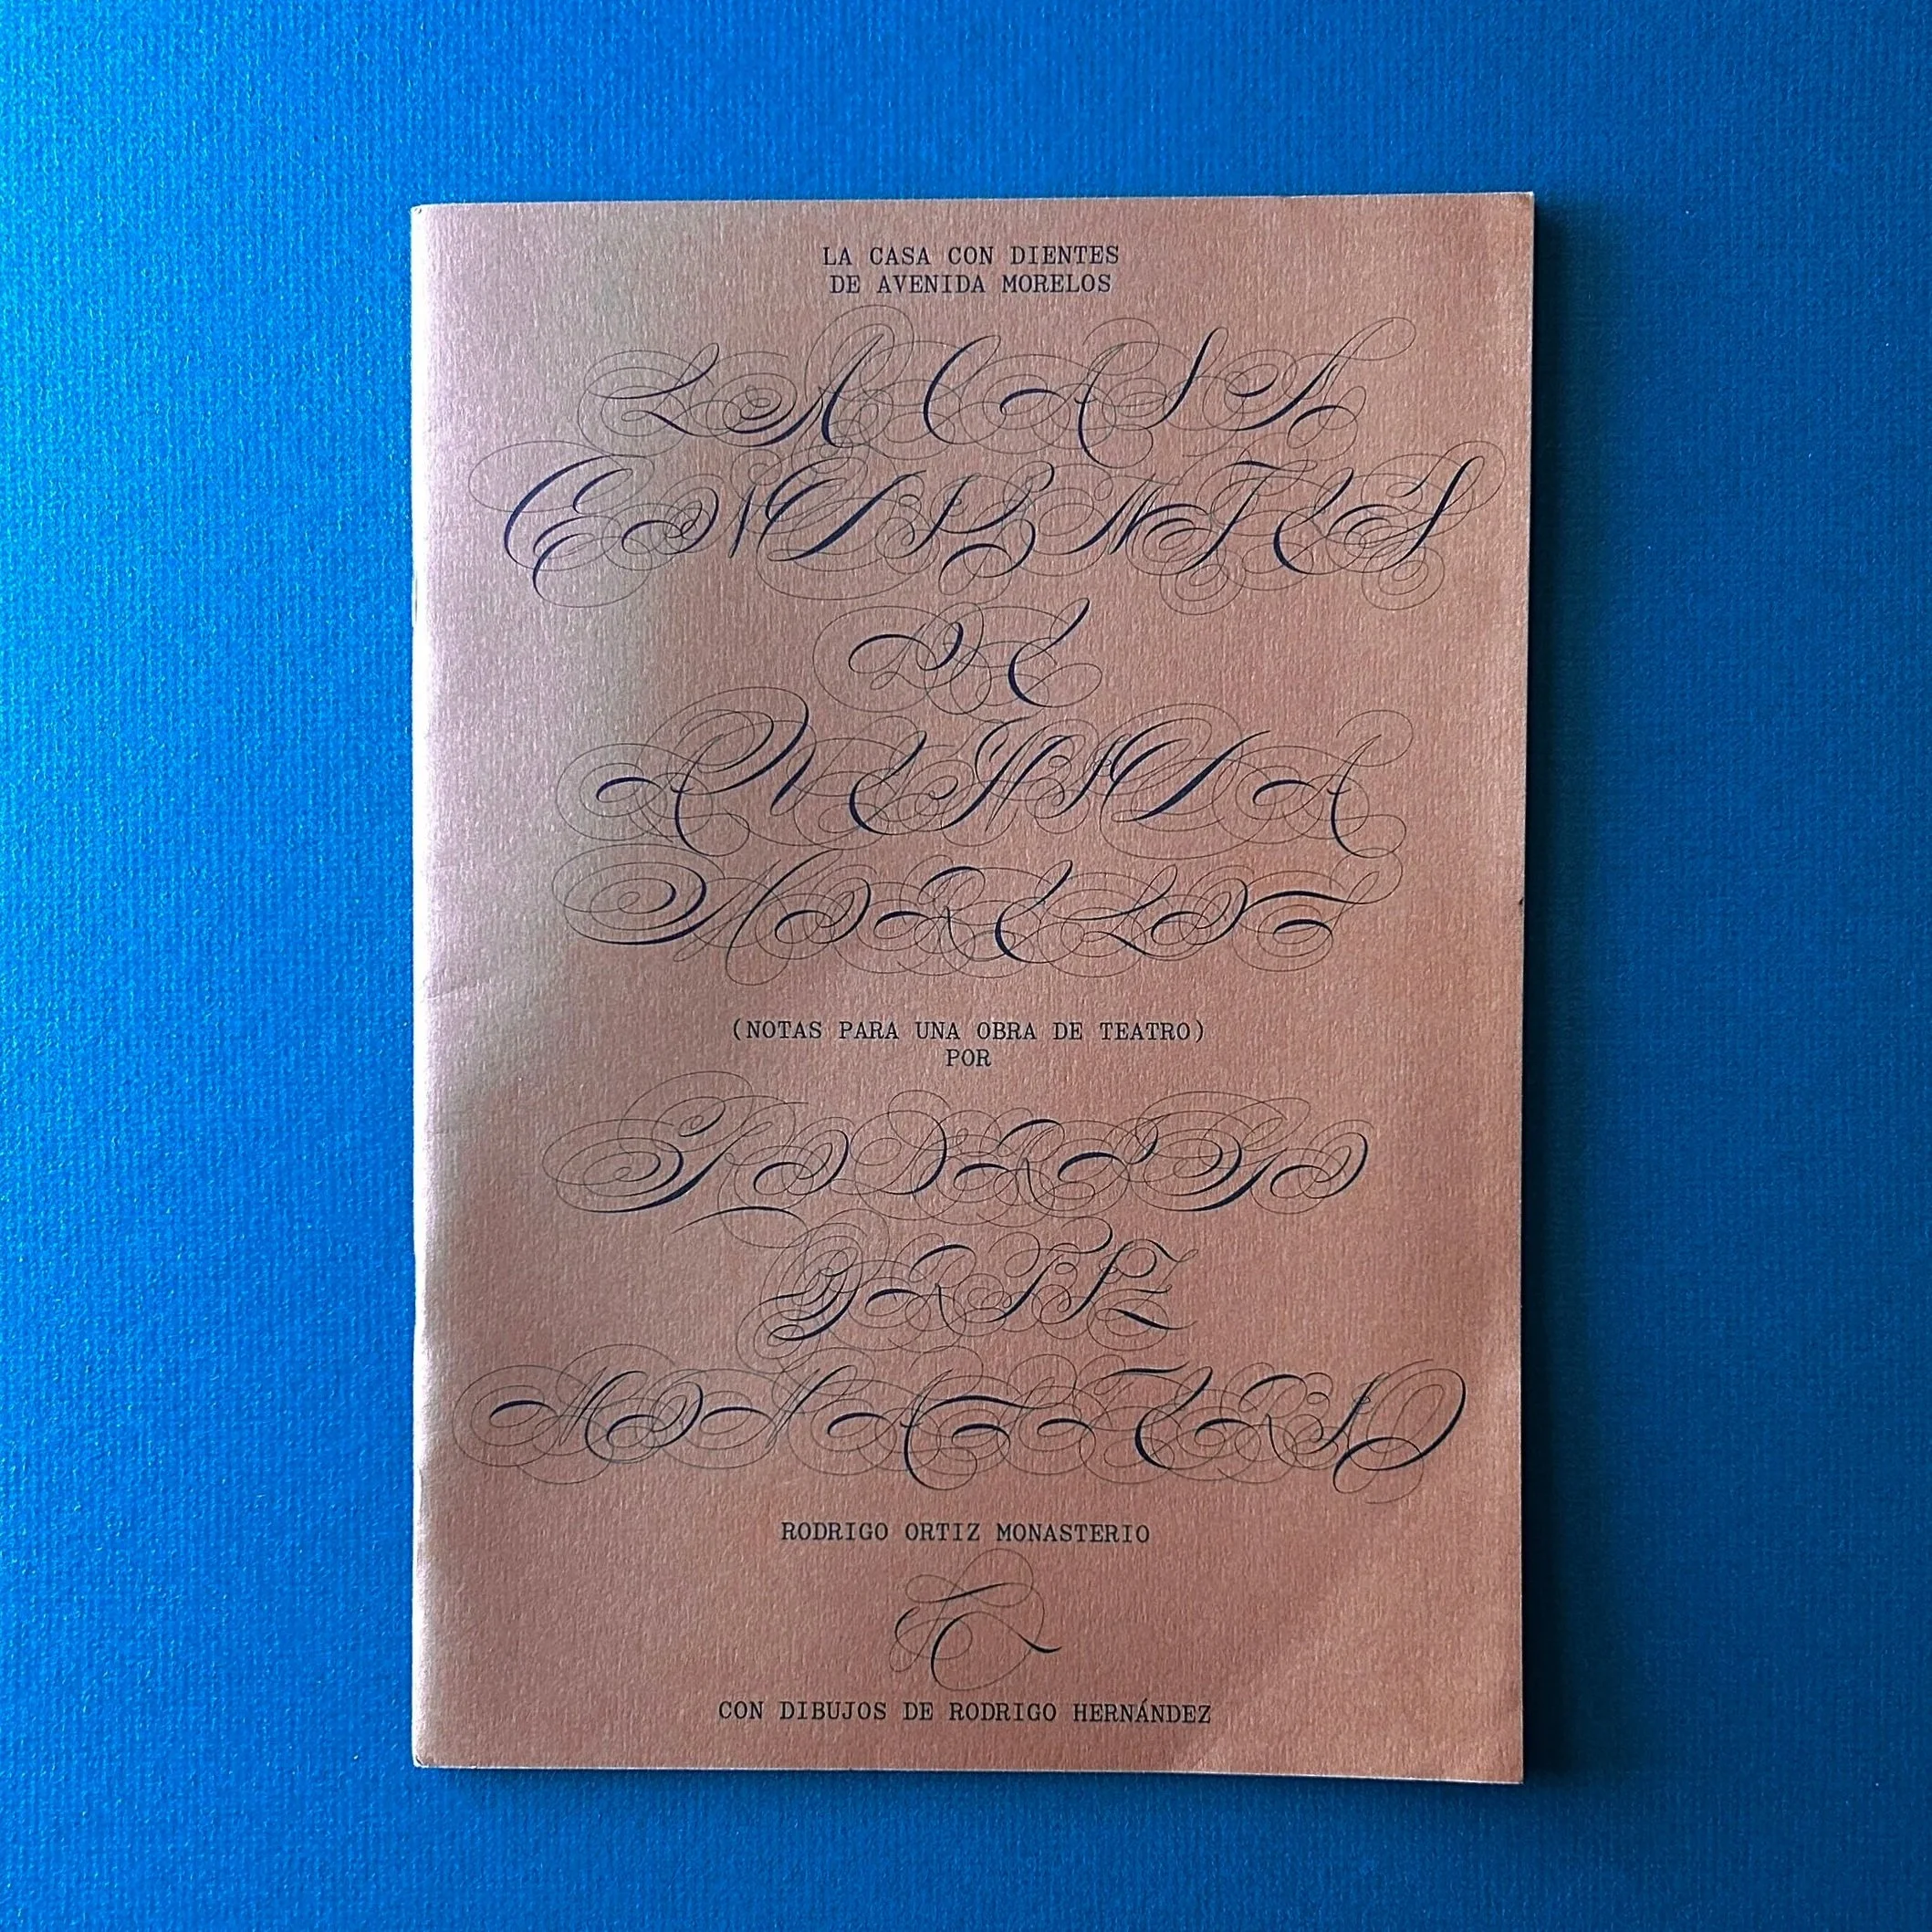 LA CASA CON DIENTES
DE AVENIDA MORELOS
LA CASA
CON DIENTES
DE
AVENIDA
MORELOS
(NOTAS PARA UNA OBRA DE TEATRO)
POR
RODRIGO
ORTIZ
MONASTERIO
RODRIGO ORTIZ MONASTERIO
CON DIBUJOS DE RODRIGO HERNÁNDEZ